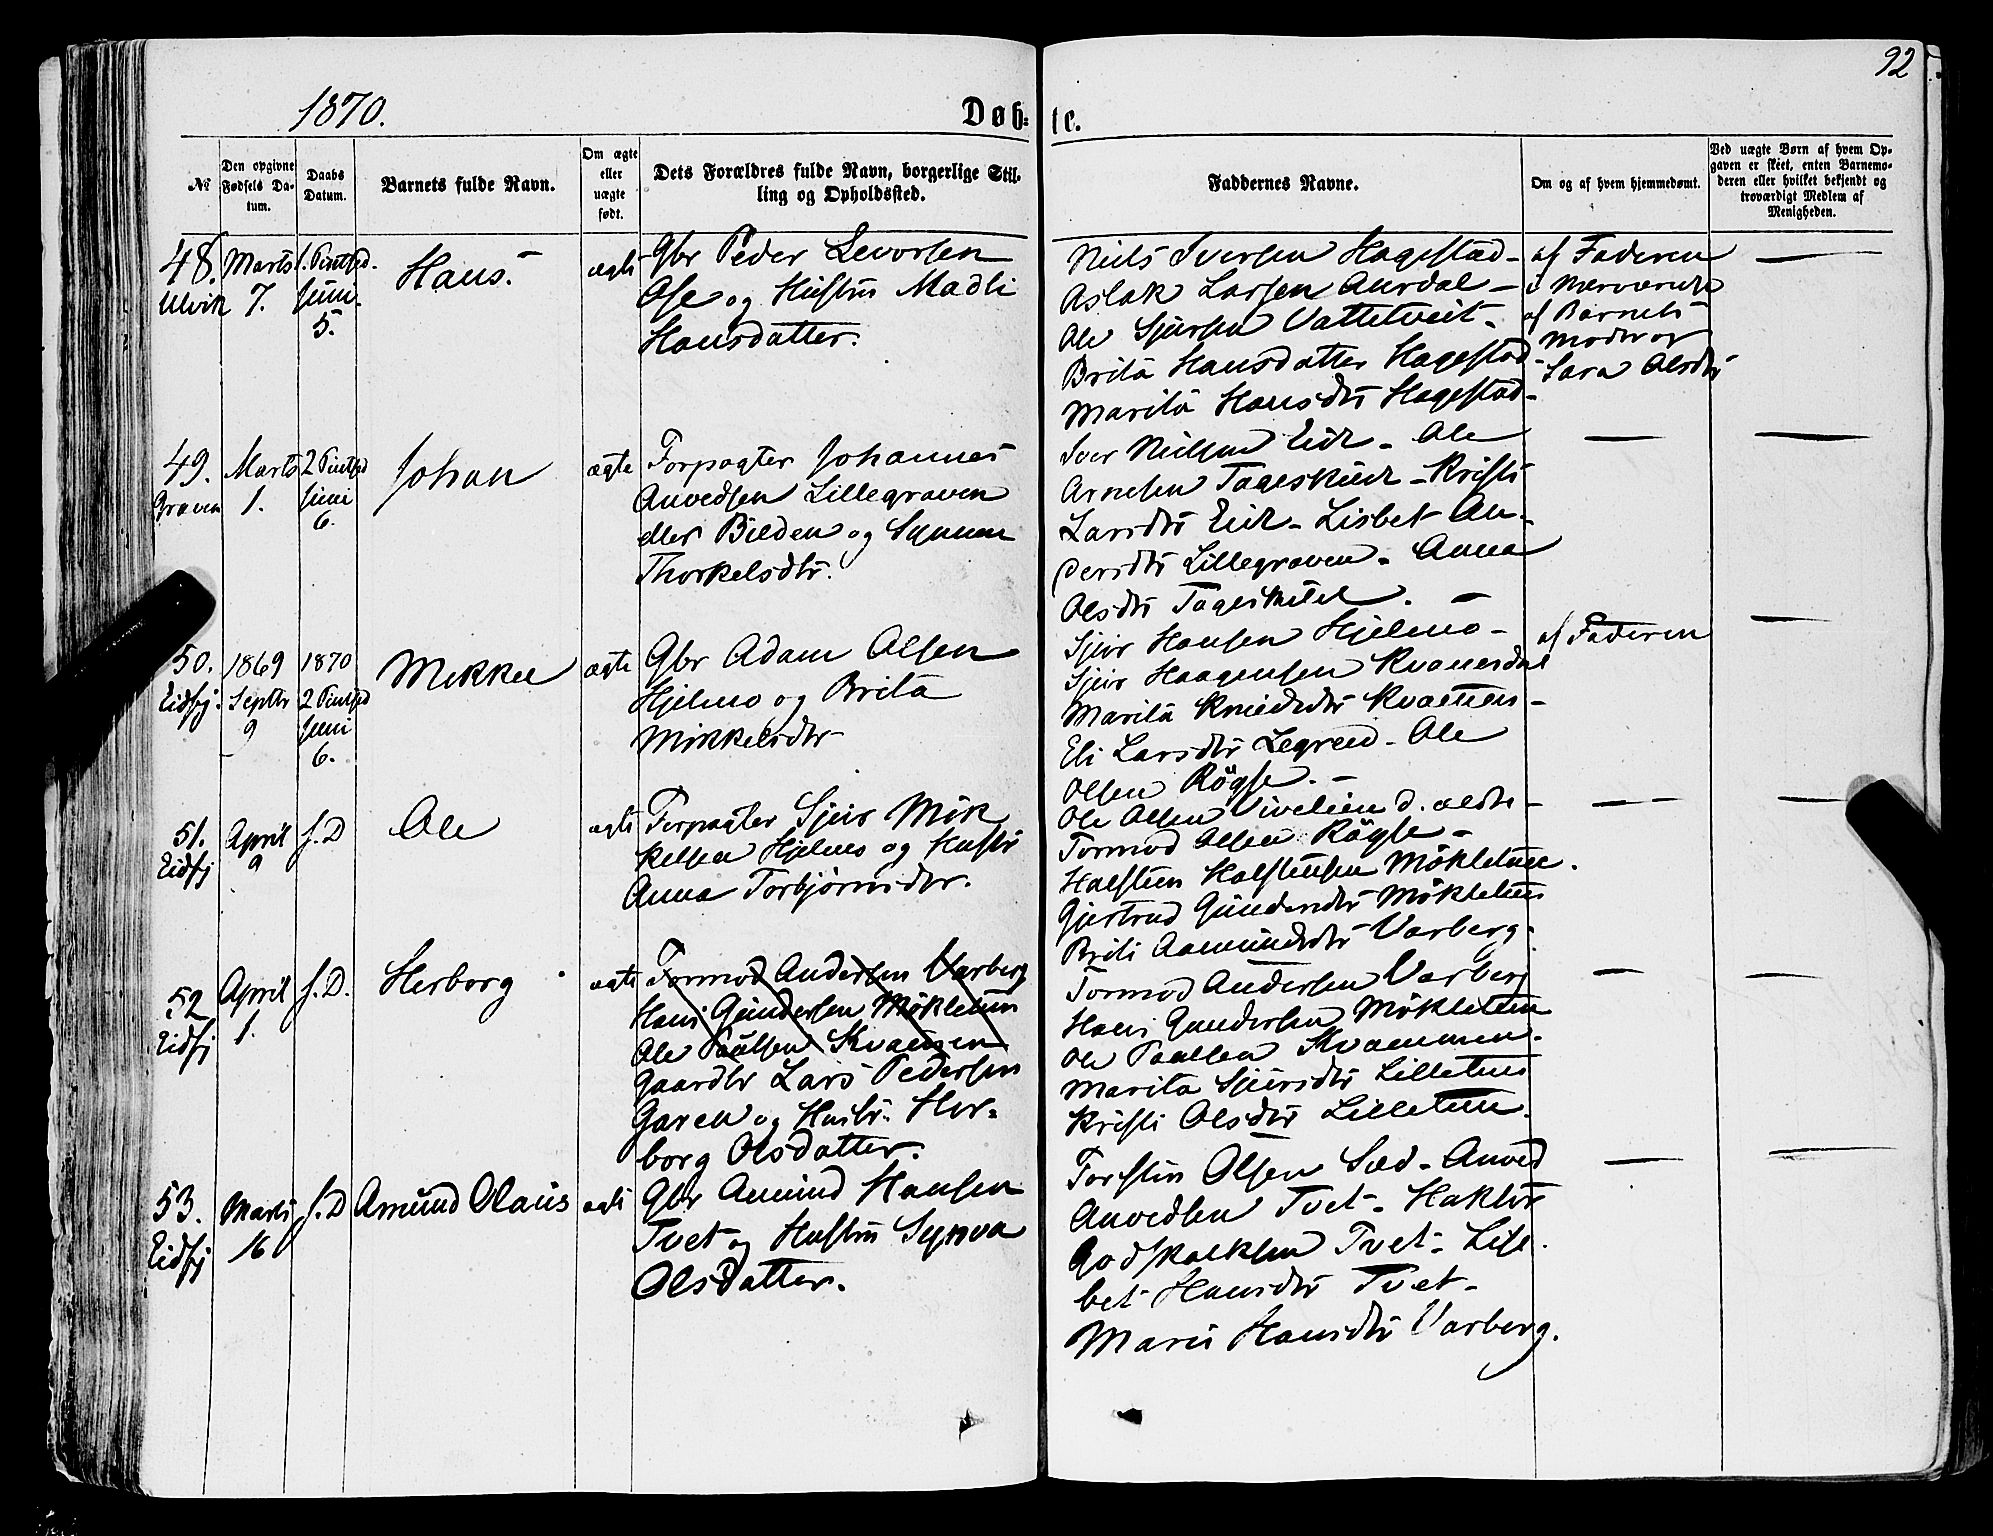 92
1870.
Døb-
te.
№
Den opgivne Fødsels Datum.
Daabs Datum.
Barnets fulde Navn.
Om ægte eller uægte født.
Dets Forældres fulde Navn, borgerlige Stilling og Opholdssted.
Faddernes Navne.
Om og af hvem hjemmedømt.
Ved uægte Børn af hvem Opgaven er skeet, enten Barnemoderen eller hvilket bekjendt og troværdigt Medlem af Menigheden.
48.
Ulvik
Marts
7.
1. Pintsed.
Juni
5.
Hans.
ægte
Gbr Peder Levorsen
Ose og Hustru Madli
Hansdatter.
Niels Iversen Hagestad-
Aslak Larsen Aurdal-
Ole Sjursen Vattetveit-
Brita Hansdatter Hagestad-
Marita Hansdtr Hagestad-
af Faderen
i Nærværelse
af Barnets
Moder og
Sara Olsdtr
49.
Graven
Marts
1.
2 Pintsed
Juni
6.
Johan
ægte
Forpagter Johannes
Anvedsen Lillegraven
eller Bilden og
Thorkelsdtr.
Iver Nielsen Eide- Ole
Arnesen - Kristi
Larsdtr Eide- Lisbet An-
dersdtr Lillegraven- Anna
Olsdtr
50.
Eidfj.
1869
Septbr
9
1870
2 Pintsed
Juni
6.
Mikkel
ægte
Gbr Adam Olsen
Hjelmo og Brita
Mikkelsdtr
Sjur Hansen Hjelmo-
Sjur Haagensen Kvanesdal
Marita Kvammen-
Eli Larsdtr Legreid- Ole
Olsen Røgse.-
af Faderen
51.
Eidfj
April
9
s.D
Ole
ægte
Forpagter Sjur Mik
kelsen Hjelmo og Hustr
Anna Torbjørnsdtr.
Ole Olsen Viveliен d. ældre-
Tormod Olsen Røgse-
Halsten Halstensen Møkletun.
Gjertrud Gundersdtr Møkletun
Brita Aamundsdtr Varberg-
52
Eidfj
April
1.
s.D.
Herborg
ægte
Tormod Andersen Varberg
Hans Gundersen Møkletun
Ole Paulsen Kvammen
Gaardbr Lars Pedersen
Garen og Hustr. Her-
borg Olsdatter.
Tormod Andersen Varberg
Hans Gundersen Møkletun
Ole Paulsen Kvammen.
Marita Sjursdtr Lilletun
Kristi Olsdtr Lilletun.
53.
Eidfj
Marts
16
s.D
Amund Olaus
ægte
Gbr Amund Hansen
Tvet og Hustru Synva
Olsdatter.
Torstein Olsen Sæd- Anved
Anvedsen Tvet- Haktor
Godskalksen Tvet- Lis-
bet Hansdtr Tvet-
Mari Hansdtr Varberg.